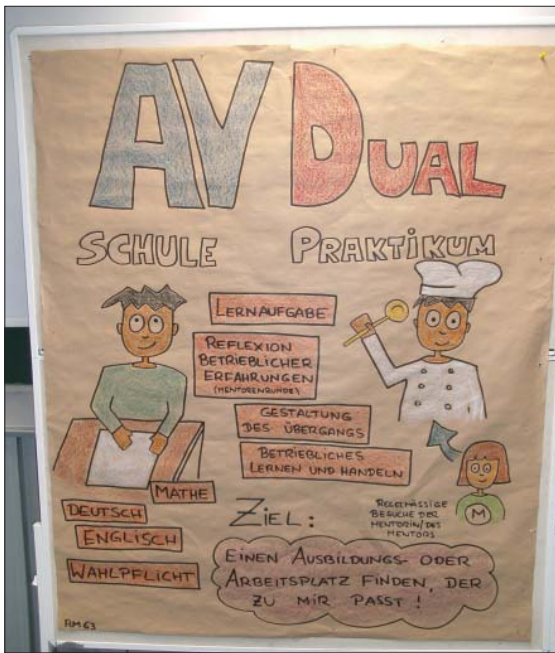 AV DUAL
SCHULE PRAKTIKUM
LERNAUFGABE
REFLEXION
BETRIEBLICHER
ERFAHRUNGEN
(MENTORENRUNDE)
GESTALTUNG
DES ÜBERGANGS
BETRIEBLICHES
LERNEN UND HANDELN
MATHE
DEUTSCH
ENGLISCH
WAHLPFLICHT
REGELMÄSSIGE
BESUCHE DER
MENTORIN/DES
MENTORS
M
ZIEL:
EINEN AUSBILDUNGS- ODER
ARBEITSPLATZ FINDEN, DER
ZU MIR PASST!